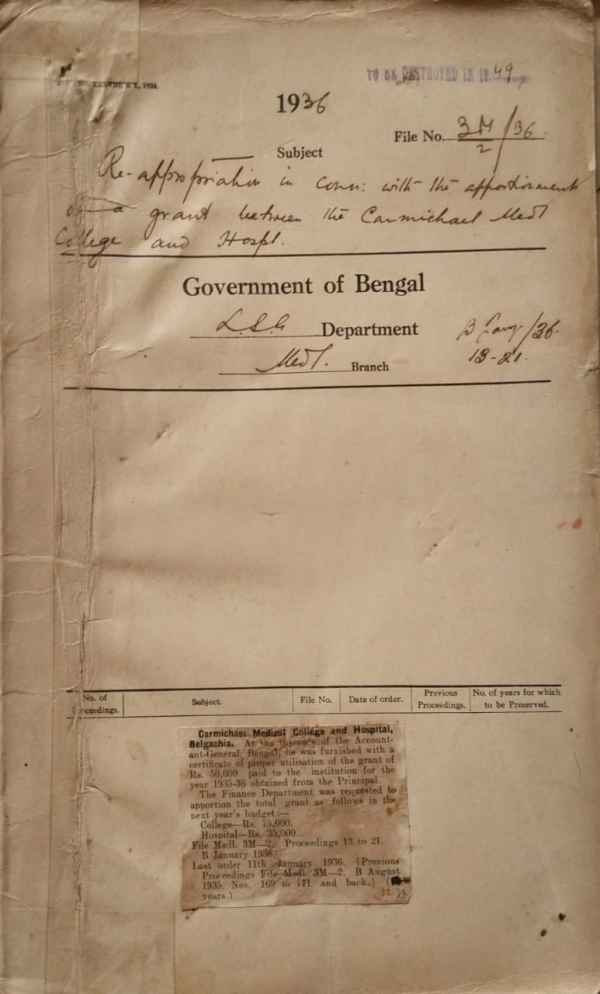 TO BE DESTROYED IN 1949
1936
File No. 3M/2/36
Subject
Re-appropriation in conn: with the apportionment
of a grant between the Carmichael Medl
College and Hospl.
Government of Bengal
L.S.G Department
B /36.
Medl. Branch
13-21.
No. of
Proceedings.
Subject.
File No.
Date of order.
Previous
Proceedings.
No. of years for which
to be Preserved.
Carmichael Medical College and Hospital,
Belgachia. At the instance of the Account-
ant-General, Bengal, he was furnished with a
certificate of proper utilisation of the grant of
Rs. 50,000 paid to the institution for the
year 1935-36 obtained from the Principal.
The Finance Department was requested to
apportion the total grant as follows in the
next year's budget:—
College—Rs. 15,000.
Hospital—Rs. 35,000.
File Medl. 3M—2, Proceedings 13 to 21.
B January 1936.
Last order 11th January 1936. [Previous
Proceedings File Medl. 3M—2, B August
1935, Nos. 169 to 171 and back.]
years.)